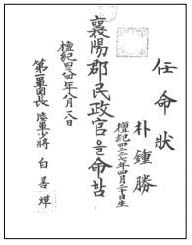 任命狀
朴鍾勝
檀紀 年四月二十日生
襄陽郡民政官을 命함
檀紀四二八四年八月八日
第一軍團長 陸軍少將 白善燁